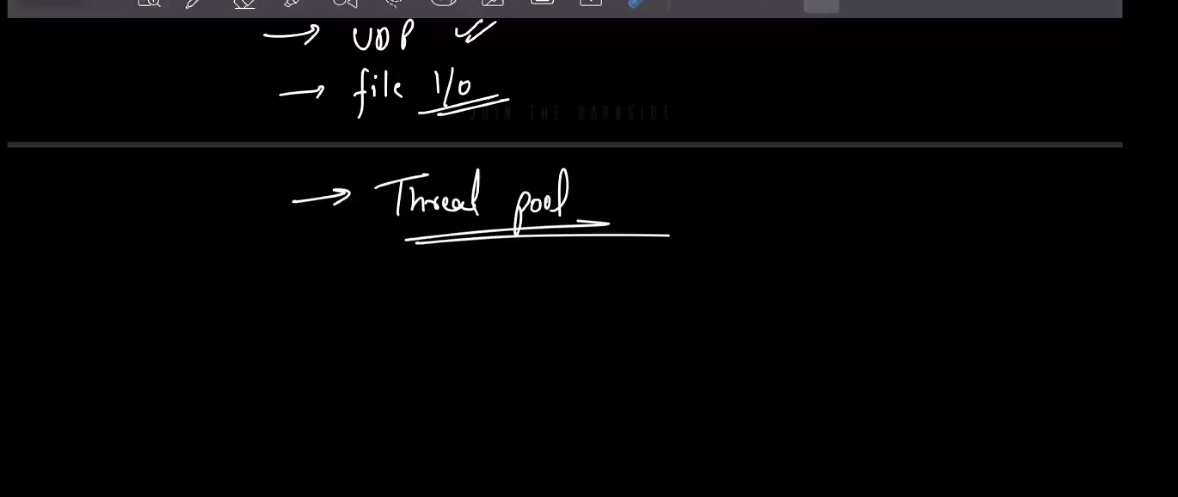 → UDP
→ file I/O
JOIN THE DARKSIDE
→ Thread pool